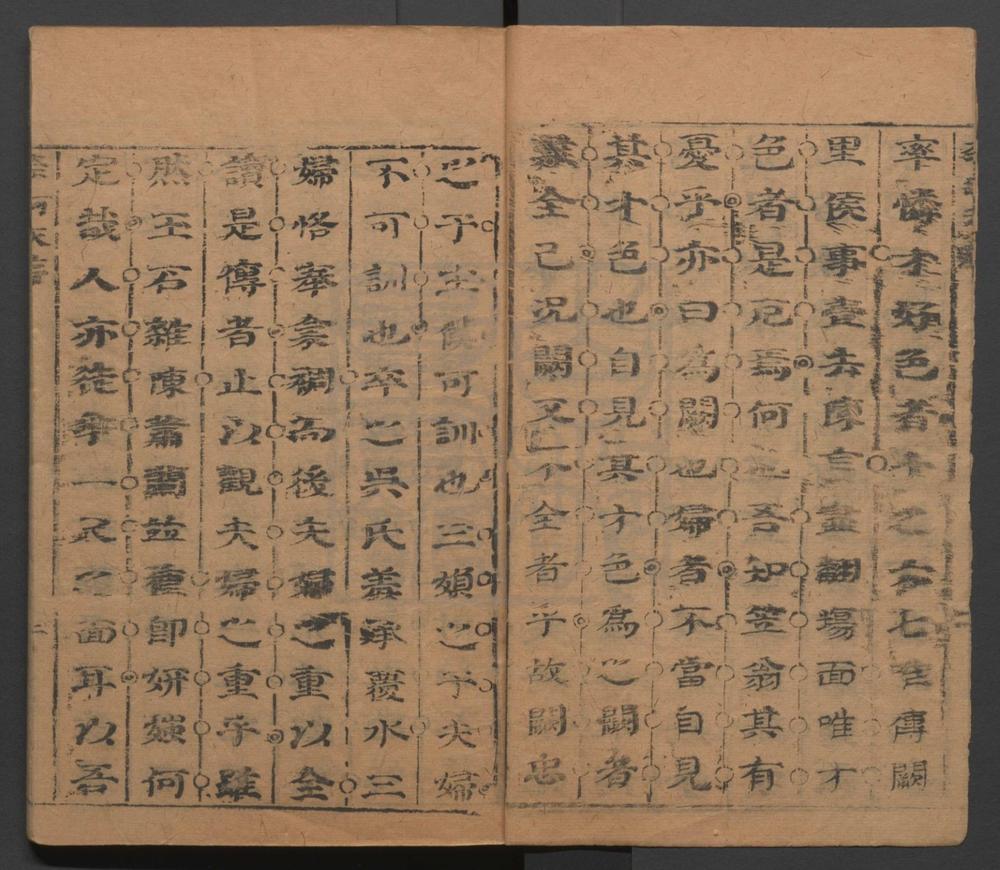 率憐才好色者十之六七唯傳闕
里侯事壹去陳言盡翻場面唯才
色者是厄焉何也吾知笠翁其有
憂乎亦曰為闕也婦者不當自見
其才色也自見其才色為之闕者
難全已況闕又不全者乎故闕忠
之于主僕可訓也三嬪之于夫婦
不可訓也卒之吳氏羞深覆水三
婦恪奉衾裯為後夫婦之重以全
讀是傳者止以觀夫婦之重乎雖
然玉石雜陳蕭蘭並種即妍媸何
定哉人亦徒爭一之面耳以吾